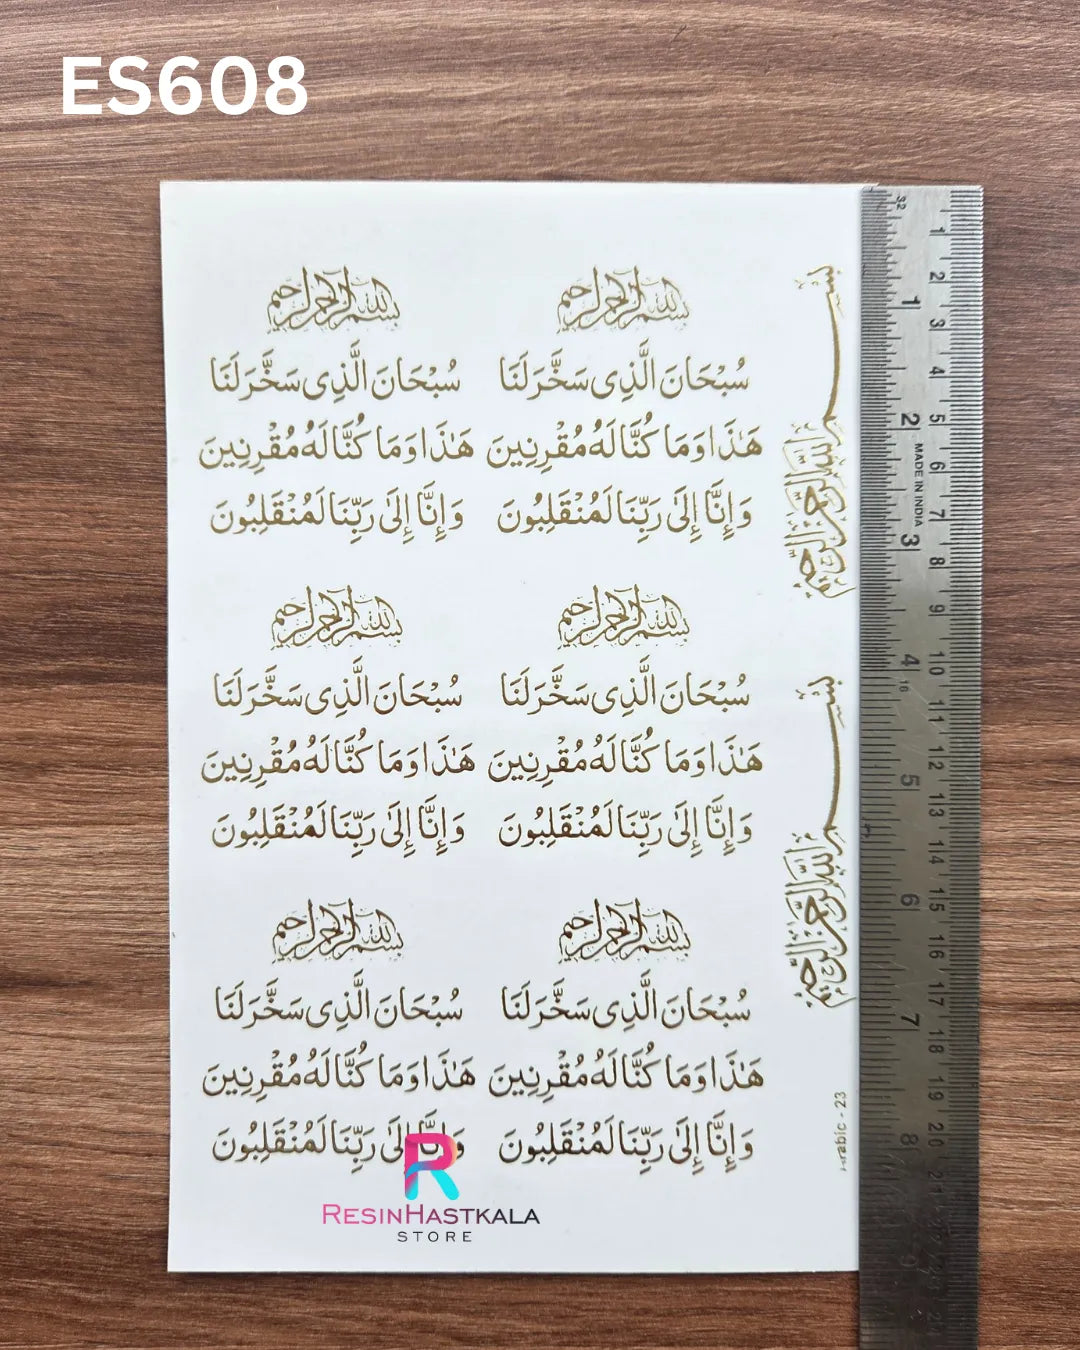 ES608
بسم الله الرحمن الرحيم
سُبْحَانَ الَّذِى سَخَّرَ لَنَا
هَٰذَا وَمَا كُنَّا لَهُ مُقْرِنِينَ
وَإِنَّا إِلَىٰ رَبِّنَا لَمُنْقَلِبُونَ
بسم الله الرحمن الرحيم
سُبْحَانَ الَّذِى سَخَّرَ لَنَا
هَٰذَا وَمَا كُنَّا لَهُ مُقْرِنِينَ
وَإِنَّا إِلَىٰ رَبِّنَا لَمُنْقَلِبُونَ
بسم الله الرحمن الرحيم
سُبْحَانَ الَّذِى سَخَّرَ لَنَا
هَٰذَا وَمَا كُنَّا لَهُ مُقْرِنِينَ
وَإِنَّا إِلَىٰ رَبِّنَا لَمُنْقَلِبُونَ
بسم الله الرحمن الرحيم
سُبْحَانَ الَّذِى سَخَّرَ لَنَا
هَٰذَا وَمَا كُنَّا لَهُ مُقْرِنِينَ
وَإِنَّا إِلَىٰ رَبِّنَا لَمُنْقَلِبُونَ
بسم الله الرحمن الرحيم
سُبْحَانَ الَّذِى سَخَّرَ لَنَا
هَٰذَا وَمَا كُنَّا لَهُ مُقْرِنِينَ
وَإِنَّا إِلَىٰ رَبِّنَا لَمُنْقَلِبُونَ
بسم الله الرحمن الرحيم
سُبْحَانَ الَّذِى سَخَّرَ لَنَا
هَٰذَا وَمَا كُنَّا لَهُ مُقْرِنِينَ
وَإِنَّا إِلَىٰ رَبِّنَا لَمُنْقَلِبُونَ
بسم الله الرحمن الرحيم
بسم الله الرحمن الرحيم
Arabic - 23
RESINHASTKALA
STORE
32
1 2 3 4 5 6 7 8 9 10 11 12 13 14 15 16 17 18 19 20
1 2 3 4 5 6 7 8 9
MADE IN INDIA
16